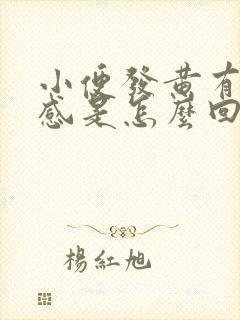 小便發黃有
感是怎麼回
楊紅旭